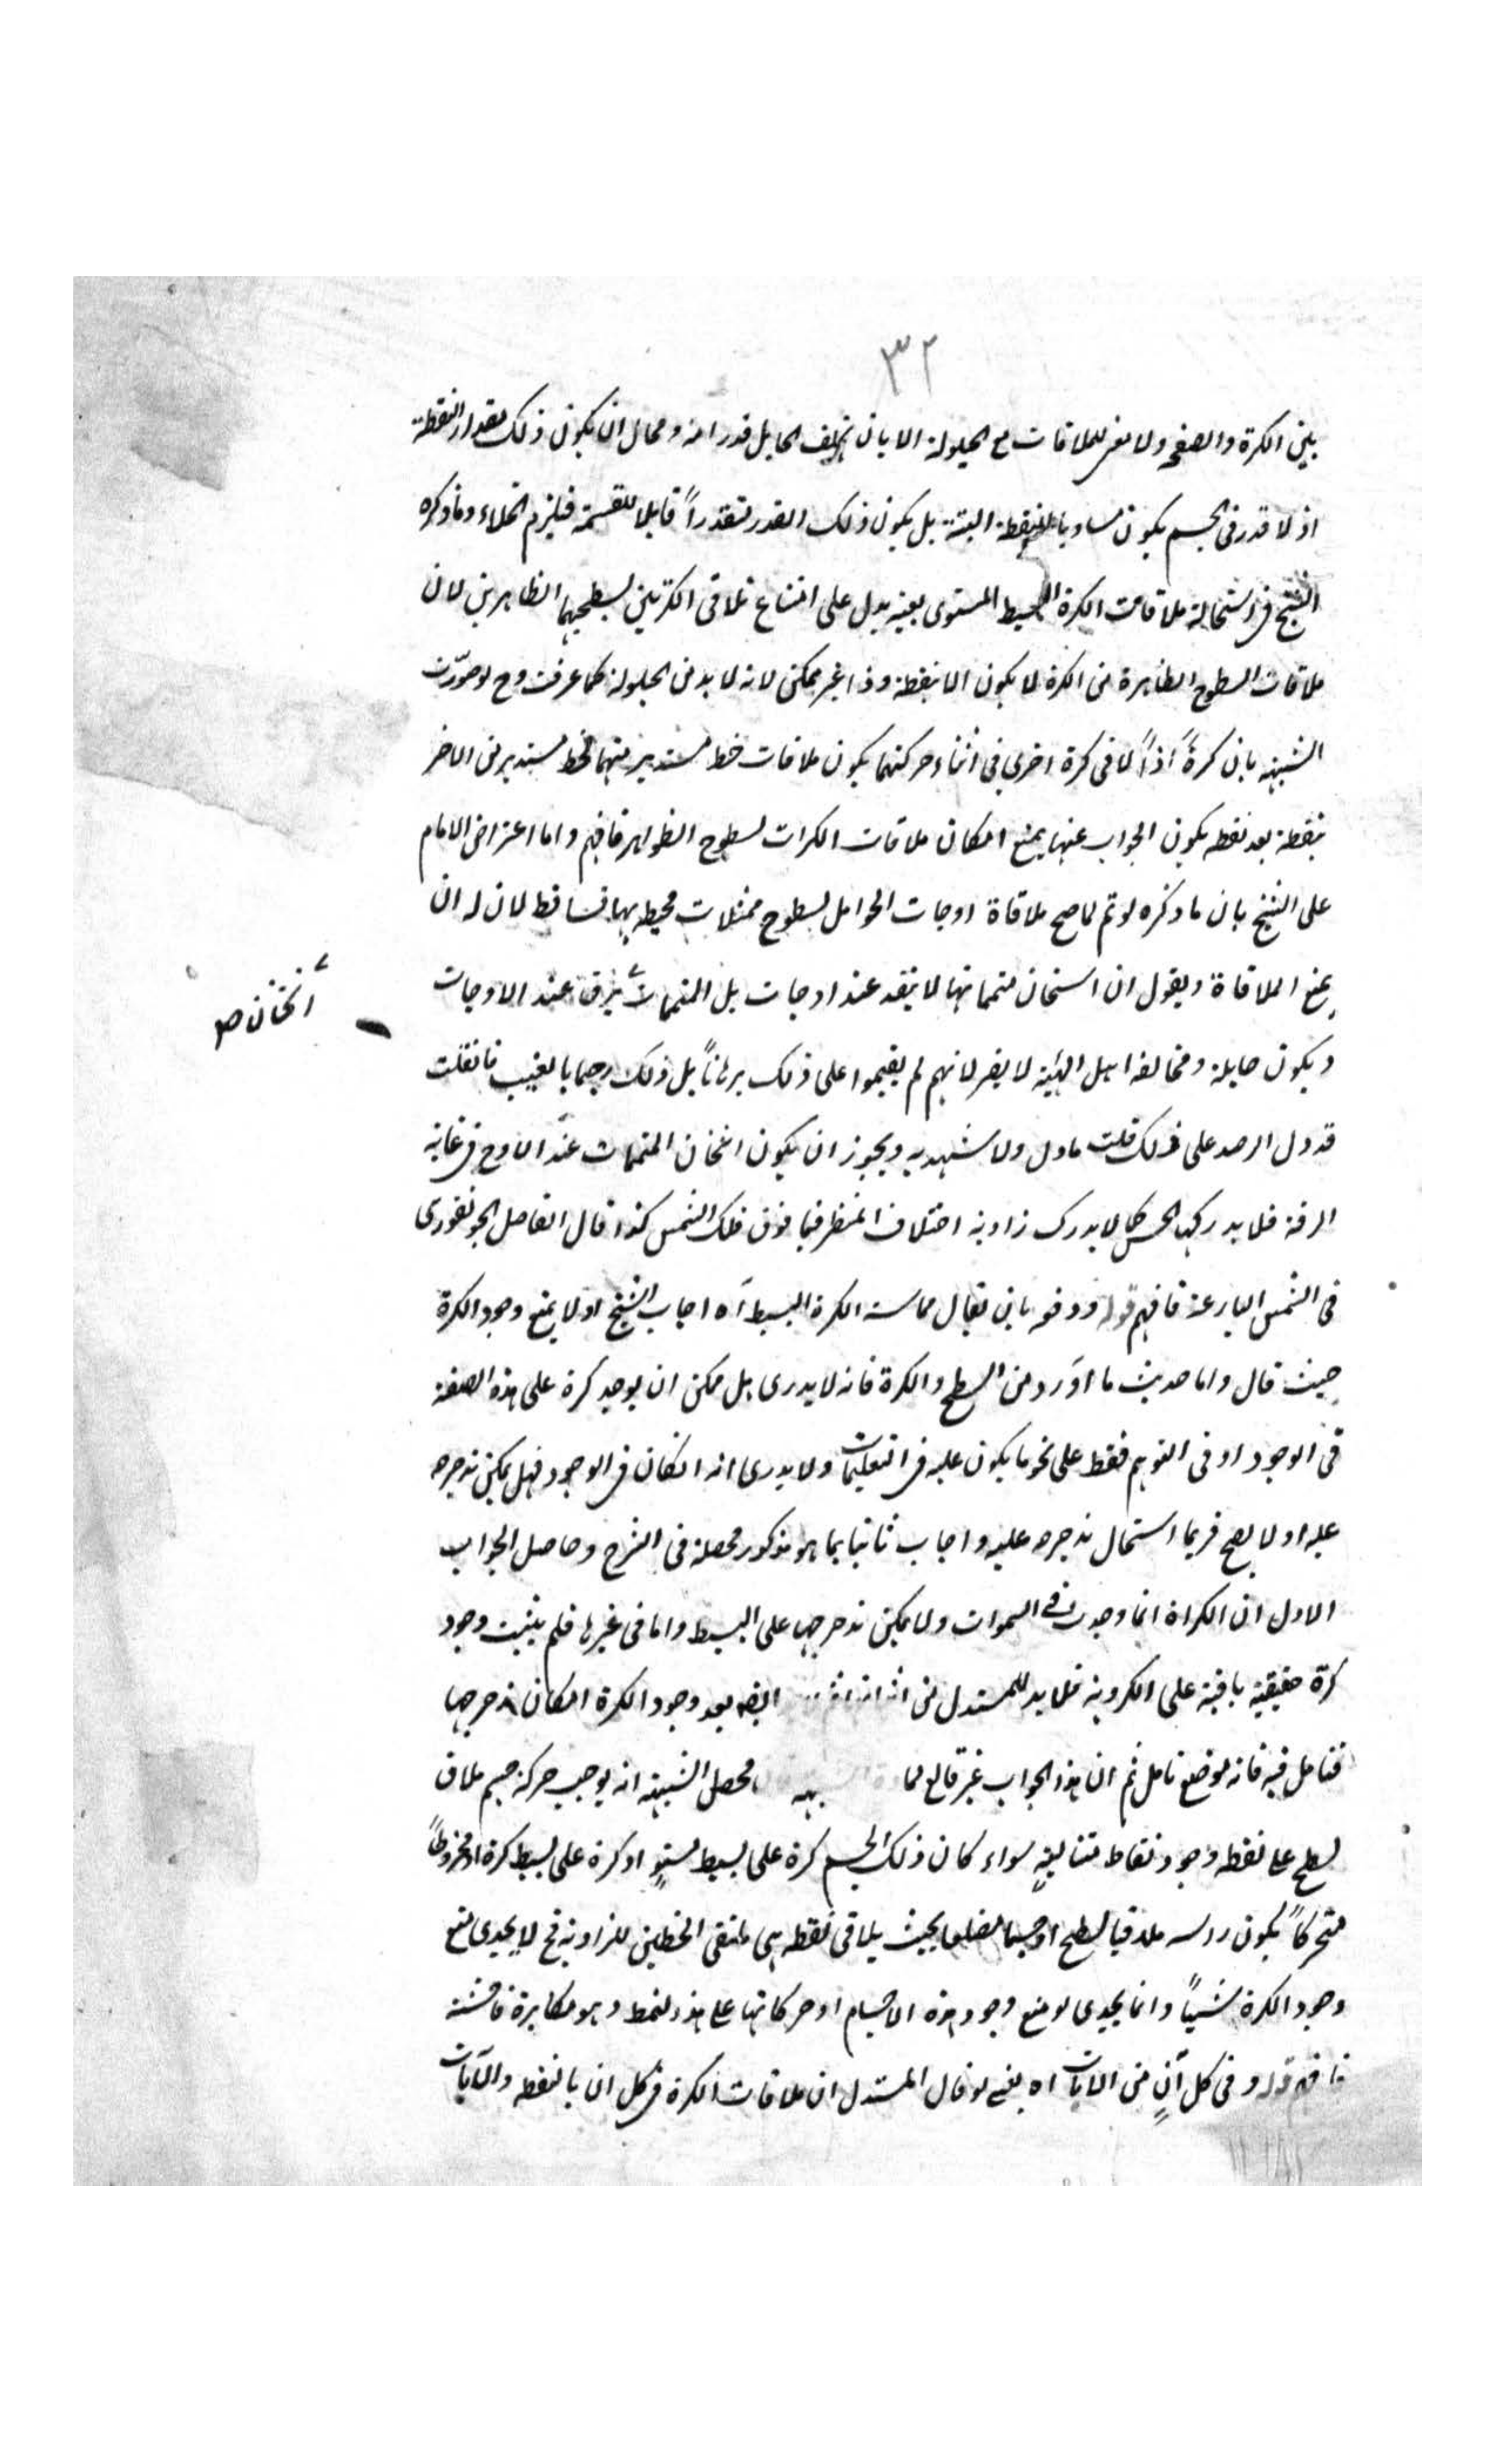 ٣٢
بين الكرة والصفحه ولا مفر للملاقات مع الحيلولة الا بان الحايل قدرا منه ومحال ان يكون ذلك مقدار النقطة
اذ لا قدر فى الجسم يكون مساويا للنقطة البتة بل يكون ذلك القدر قابلا للقسمة فيلزم الخلاء وما ذكره
الشيخ فى استحالة ملاقات الكرة البسيط المستوى بعينه يدل على امتناع تلاقى الكرتين بسطحيهما الظاهرين لان
ملاقات السطوح الظاهرة من الكرة لا يكون الا بنقطة وذا غير ممكن لانه لا بد من الحيلولة كما عرفت وح لو صوّرت
الشبهه بان كرةً اذا لاقى كرة اخرى فى اثناء حركتهما يكون ملاقات خط مستدير منهما لخط مستدير من الاخر
بنقطة بعد نقطه يكون الجواب عنها بمنع امكان ملاقات الكرات بسطوح الظواهر فافهم واما اعتراض الامام
على الشيخ بان ما ذكره لو تم لما صح ملاقاة اوجات الحوامل بسطوح ممثلات محيطه بها فساقط لان له ان
يمنع الملاقاة ويقول ان استخان متمماتها لا ينفد عند اوجات بل المتممات يرق عند الاوجات
اثخان ص
ويكون حايلة ومخالفة اهل الهيئة لا يضر لانهم لم يقيموا على ذلك برهاناً بل ذلك رجما بالغيب فان قلت
قد دل الرصد على ذلك قلت ما دل ولا شهد به ويجوز ان يكون اثخان المتممات عند الاوج فى غاية
الرقة فلا يدركها الحس كما لا يدرك زاوية اختلاف المنظر فيما فوق فلك الشمس كذا قال الفاضل الجونفورى
فى الشمس البازغة فافهم قوله ودفعه بان يقال مماسة الكرة البسيط آه اجاب الشيخ اولا بمنع وجود الكرة
حيث قال واما حديث ما اورد من السطح والكرة فانه لا يدرى بل ممكن ان يوجد كرة على هذه الصفة
فى الوجود او فى التوهم فقط على نحو ما يكون عليه فى التعليميات ولا يدرى انه ان كان فى الوجود فهل يمكن تدحرجه
عليه او لا يصح فربما استحال تدحرجه عليه واجاب ثانيا بما هو مذكور محصله فى الشرح وحاصل الجواب
الاول ان الكراة انما وجدت فى السموات ولا يمكن تدحرجها على البسيط واما فى غيرها فلم يثبت وجود
كرة حقيقية باقية على الكروية فلا بد للمستدل من ايضه بعد وجود الكرة امكان تدحرجها
فتامل فيه فانه موضع تامل ثم ان هذا الجواب غير قالع لما محصل الشبهة انه يوجب حركة جسم ملاق
لسطح على نقطه وجود نقاط متتاليةٍ سواء كان ذلك الجسم كرة على بسيط مستوٍ او كرة على بسيط كرة او مخروطاً
متحركاً يكون راسه ملاقيا لسطح او جسما مضلعا بحيث يلاقى نقطه هى ملتقى الخطين للزاوية فح لا يجدى منع
وجود الكرة شيئاً وانما يجدى لو منع وجود هذه الاجسام او حركاتها على هذا النمط وهو مكابرة فاحشة
فافهم قوله وفى كل آنٍ من الآنات اه يعنى لو قال المستدل ان ملاقات الكرة فى كل ان بالنقطه والآنات